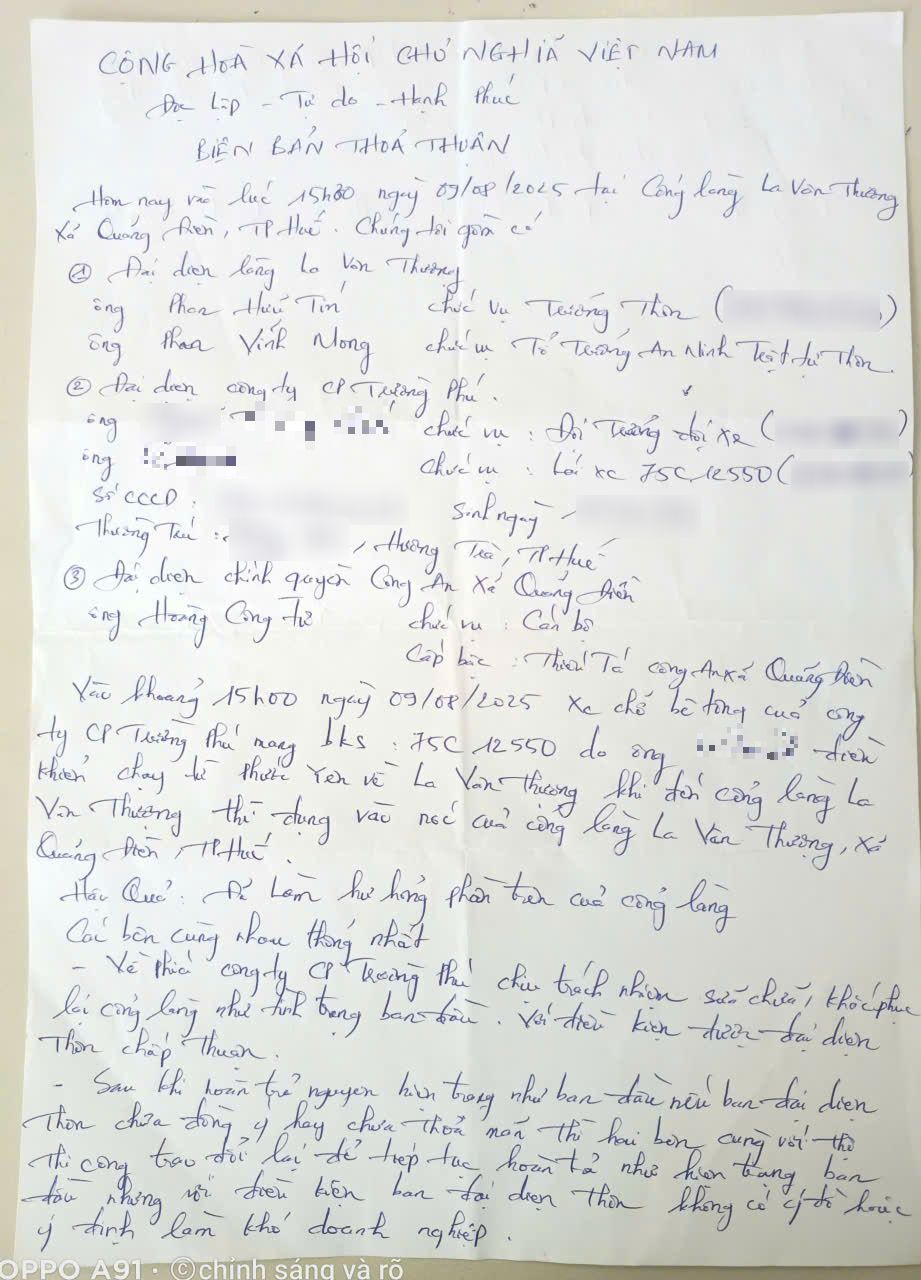 CỘNG HOÀ XÃ HỘI CHỦ NGHĨA VIỆT NAM
Độc Lập - Tự do - Hạnh Phúc
BIÊN BẢN THOẢ THUẬN
Hôm nay vào lúc 15h30 ngày 09/08/2025 tại Cổng làng La Vân Thượng
Xã Quảng Điền, TP Huế. Chúng tôi gồm có
① Đại diện làng La Vân Thượng
ông Phan Hữu Tín chức vụ Trưởng Thôn (
ông Phan Vĩnh Mong chức vụ Tổ Trưởng An Ninh Trật tự Thôn.
② Đại diện công ty CP Trường Phú.
ông chức vụ : Đội Trưởng đội xe ( )
ông chức vụ : Lái xe 75C 12550 ( )
Số CCCD : Sinh ngày
Thường Trú : , Hương Trà, TP Huế
③ Đại diện chính quyền Công An Xã Quảng Điền
ông Hoàng Công Tư chức vụ : Cán bộ
Cấp bậc : Thiếu Tá công An xã Quảng Điền
Vào khoảng 15h00 ngày 09/08/2025 xe chở bê tông của công
ty CP Trường Phú mang bks : 75C 12550 do ông điều
khiển chạy từ Phước Yên về La Vân Thượng khi đến cổng làng La
Vân Thượng thì đụng vào nóc của cổng làng La Vân Thượng, xã
Quảng Điền, TP Huế.
Hậu Quả : Đã Làm hư hỏng phần trên của cổng làng
Các bên cùng nhau thống nhất
- Về phía công ty CP Trường Phú chịu trách nhiệm sửa chữa, khắc phục
lại cổng làng như tình trạng ban đầu. Với điều kiện được đại diện
Thôn chấp thuận.
- Sau khi hoàn trả nguyên hiện trạng như ban đầu nếu ban đại diện
Thôn chưa đồng ý hay chưa thoả mãn thì hai bên cùng với thợ
thi công trao đổi lại để tiếp tục hoàn tả như hiện trạng ban
đầu nhưng với điều kiện ban đại diện thôn không có ý đồ hoặc
ý định làm khó doanh nghiệp.
OPPO A91 · ©chính sáng và rõ